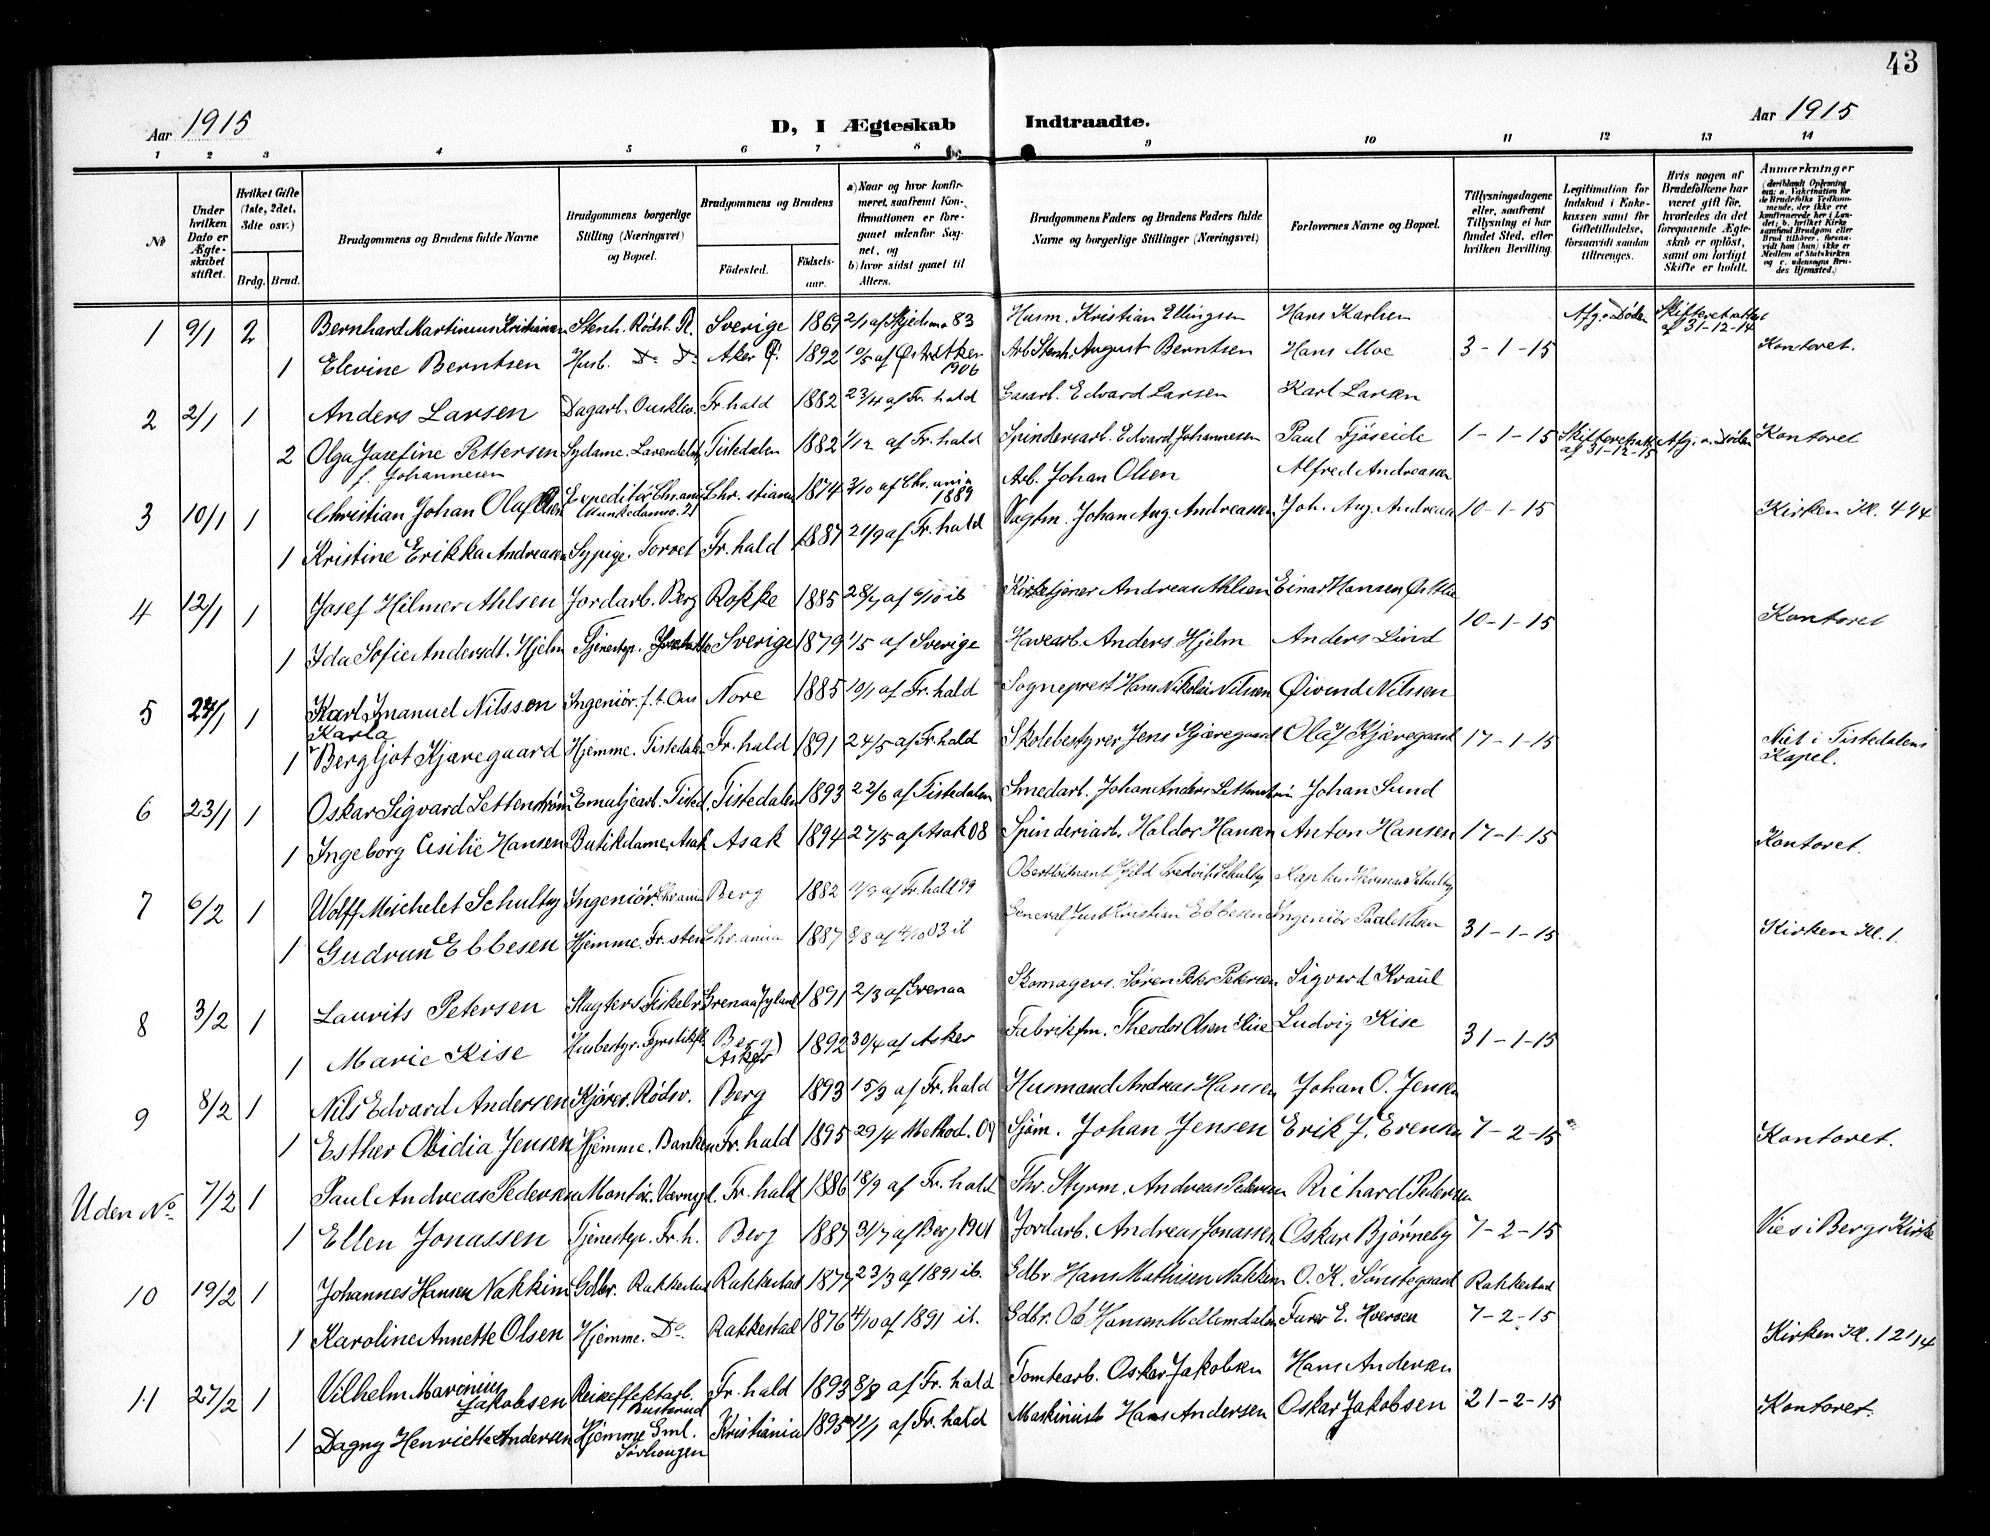 43
Aar 1915
D, I Ægteskab Indtraadte.
Aar 1915
1 2 3 4 5 6 7 8 9 10 11 12 13 14
No
Under hvilken Dato er Ægteskabet stiftet.
Hvilket Gifte (1ste, 2det, 3die osv.)
Brdg. Brud.
Brudgommens og Brudens fulde Navne
Brudgommens borgerlige Stilling (Næringsvei) og Bopæl.
Brudgommens og Brudens
Fødested.
Fødselsaar.
a) Naar og hvor konfirmeret, saafremt Konfirmationen er foregaaet udenfor Sognet, og
b) hvor sidst gaaet til Alters.
Brudgommens Faders og Brudens Faders fulde Navne og borgerlige Stillinger (Næringsvei)
Forlovernes Navne og Bopæl.
Tillysningsdagene eller, saafremt Tillysning ei har fundet Sted, efter hvilken Bevilling.
Legitimation for Indskud i Enkekassen samt for Giftetilladelse, forsaavidt saadan tiltrænges.
Hvis nogen af Brudefolkene har været gift før, hvorledes da det foregaaende Ægteskab er opløst, samt om lovligt Skifte er holdt.
Anmærkninger
1 9/1 2 Bernhard Martinius Kristiansen Stenh. Rødsb. R. Sverige 186 2/1 af Skjedsmo 83 Husm. Kristian Ellingsen Hans Karlsen Afg. Døden Skifteretsattest af 31-12-14
1 Elevine Berntsen Husb. D. D. Aker 1892 10/5 af Østre Aker 1906 Arb. Stenh. August Berntsen Hans Moe 3-1-15 Kontoret.
2 2/1 1 Anders Larsen Dagarb. Fr.hald 1882 23/4 af Fr. hald Edvard Larsen Karl Larsen
2 Olga Josefine Pettersen f. Johannesen Sydame. Tistedalen 1882 1/12 af Fr. hald Spinderiarb. Edvard Johannesen Paul Fjøseide 1-1-15 af 31-12-15 Afg. v. Døden Kontoret
3 10/1 1 Christian Johan Olaf Olsen Expeditør Chr.ania Munkedamsv. 21 Chr.stiania 1874 3/10 af Chr.ania 1889 Arb. Johan Olsen Alfred Andreassen
1 Kristine Erikka Andreasen Sypige. Torvet Fr.hald 1887 21/9 af Fr. hald Vagtm. Johan Aug. Andreassen Joh. Aug. Andreasen 10-1-15 Kirken Kl. 4
4 12/1 1 Josef Hilmer Ahlsen Jordarb. Berg Rokke 1885 28/7 af 6/10 ib Kirketjener Andreas Ahlsen Einar Hansen Østlie
1 Ida Sofie Andersdt. Hjelm Tjenestep. Sverige 1879 1/5 af Sverige Havearb. Anders Hjelm Anders Lind 10-1-15 Kontoret
5 24/1 1 Karl Imanuel Nilsson Ingeniør. f.t. Nore 1885 10/1 af Fr. hald Sogneprest Hans Nikolai Nilssen Øivind Nilssen
1 Karla Bergljot Kjæregaard Hjemme. Tistedalen Fr.hald 1891 24/5 af Fr.hald Skolebestyrer Jens Kjæregaard Olaf Kjæregaard 17-1-15 Viet i Tistedalens Kapel.
6 23/1 1 Oskar Sigvard Settenstrøm Emaljearb. Tisted. Tistedalen 1893 22/6 af Tistedalen Smedarb. Johan Anders Johan Sund
1 Ingeborg Cesilie Hansen Butikdame. Asak Asak 1894 27/5 af Asak 08 Spinderiarb. Haldor Hansen Anton Hansen 17-1-15 Kontoret.
7 6/2 1 Wolff Michelet Schultz Ingeniør. Chr.ania Berg 1882 af Fr.hald 99 Fredrik Schultz
1 Gudrun Ebbesen Hjemme. Fr.sten Chr.ania 1887 8/8 af 4/10 03 ib General Just Kristian Ebbesen Ingeniør Paal Nilsen 31-1-15 Kirken Kl. 1.
8 3/2 1 Laurits Petersen Slagters. Grenaa Jylland 1891 2/3 af Grenaa Skomagers. Søren Peter Petersen Sigvard Kraul
1 Marie Kise Husbestyr. Berg Asker 1892 30/4 af Asker Fabrikfm. Theodor Olsen Kise Ludvig Kise 31-1-15
9 8/2 1 Nils Edvard Andersen Kjører. Rødsv. Berg 1893 15/3 af Fr. hald Husmand Andreas Hansen Johan O. Jensen
1 Esther Obidia Jensen Hjemme. Banken Fr. hald 1895 29/4 Method. 09 Sjøm. Johan Jensen Erik J. Erensen 7-2-15 Kontoret.
Uden No. 7/2 1 Paul Andreas Pedersen Montør. Fr. hald 1886 18/9 af Fr. hald Thr. Styrm. Andreas Pedersen Richard Pedersen
1 Ellen Jonassen Tjenestep. Fr.h. Berg 1887 31/7 af Berg 1901 Jordarb. Andreas Jonassen Oskar Bjørneby 7-2-15 Vies i Bergs Kirke
10 19/2 1 Johannes Hansen Nakkim Gdbr. Rakkestad Rakkestad 1877 23/3 af 1891 ib. Gdbr. Hans Mathisen Nakkim O. K. Sønstegaard Rakkestad
1 Karoline Annette Olsen Hjemme. Do. Rakkestad 1876 4/10 af 1891 ib. Gdbr. Ole Hansen Mellemdalen E. 7-2-15 Kirken Kl. 12 1/4
11 27/2 1 Vilhelm Marinius Jakobsen Reiseffektarb. Busterud Fr. hald 1893 8/8 af Fr. hald Tomtearb. Oskar Jakobsen Hans Andersen
1 Dagny Henriette Andersen Hjemme Gml. Sørhougen Kristiania 1895 11/1 af Fr. hald Maskinist Hans Andersen Oskar Jakobsen 21-2-15 Kontoret.